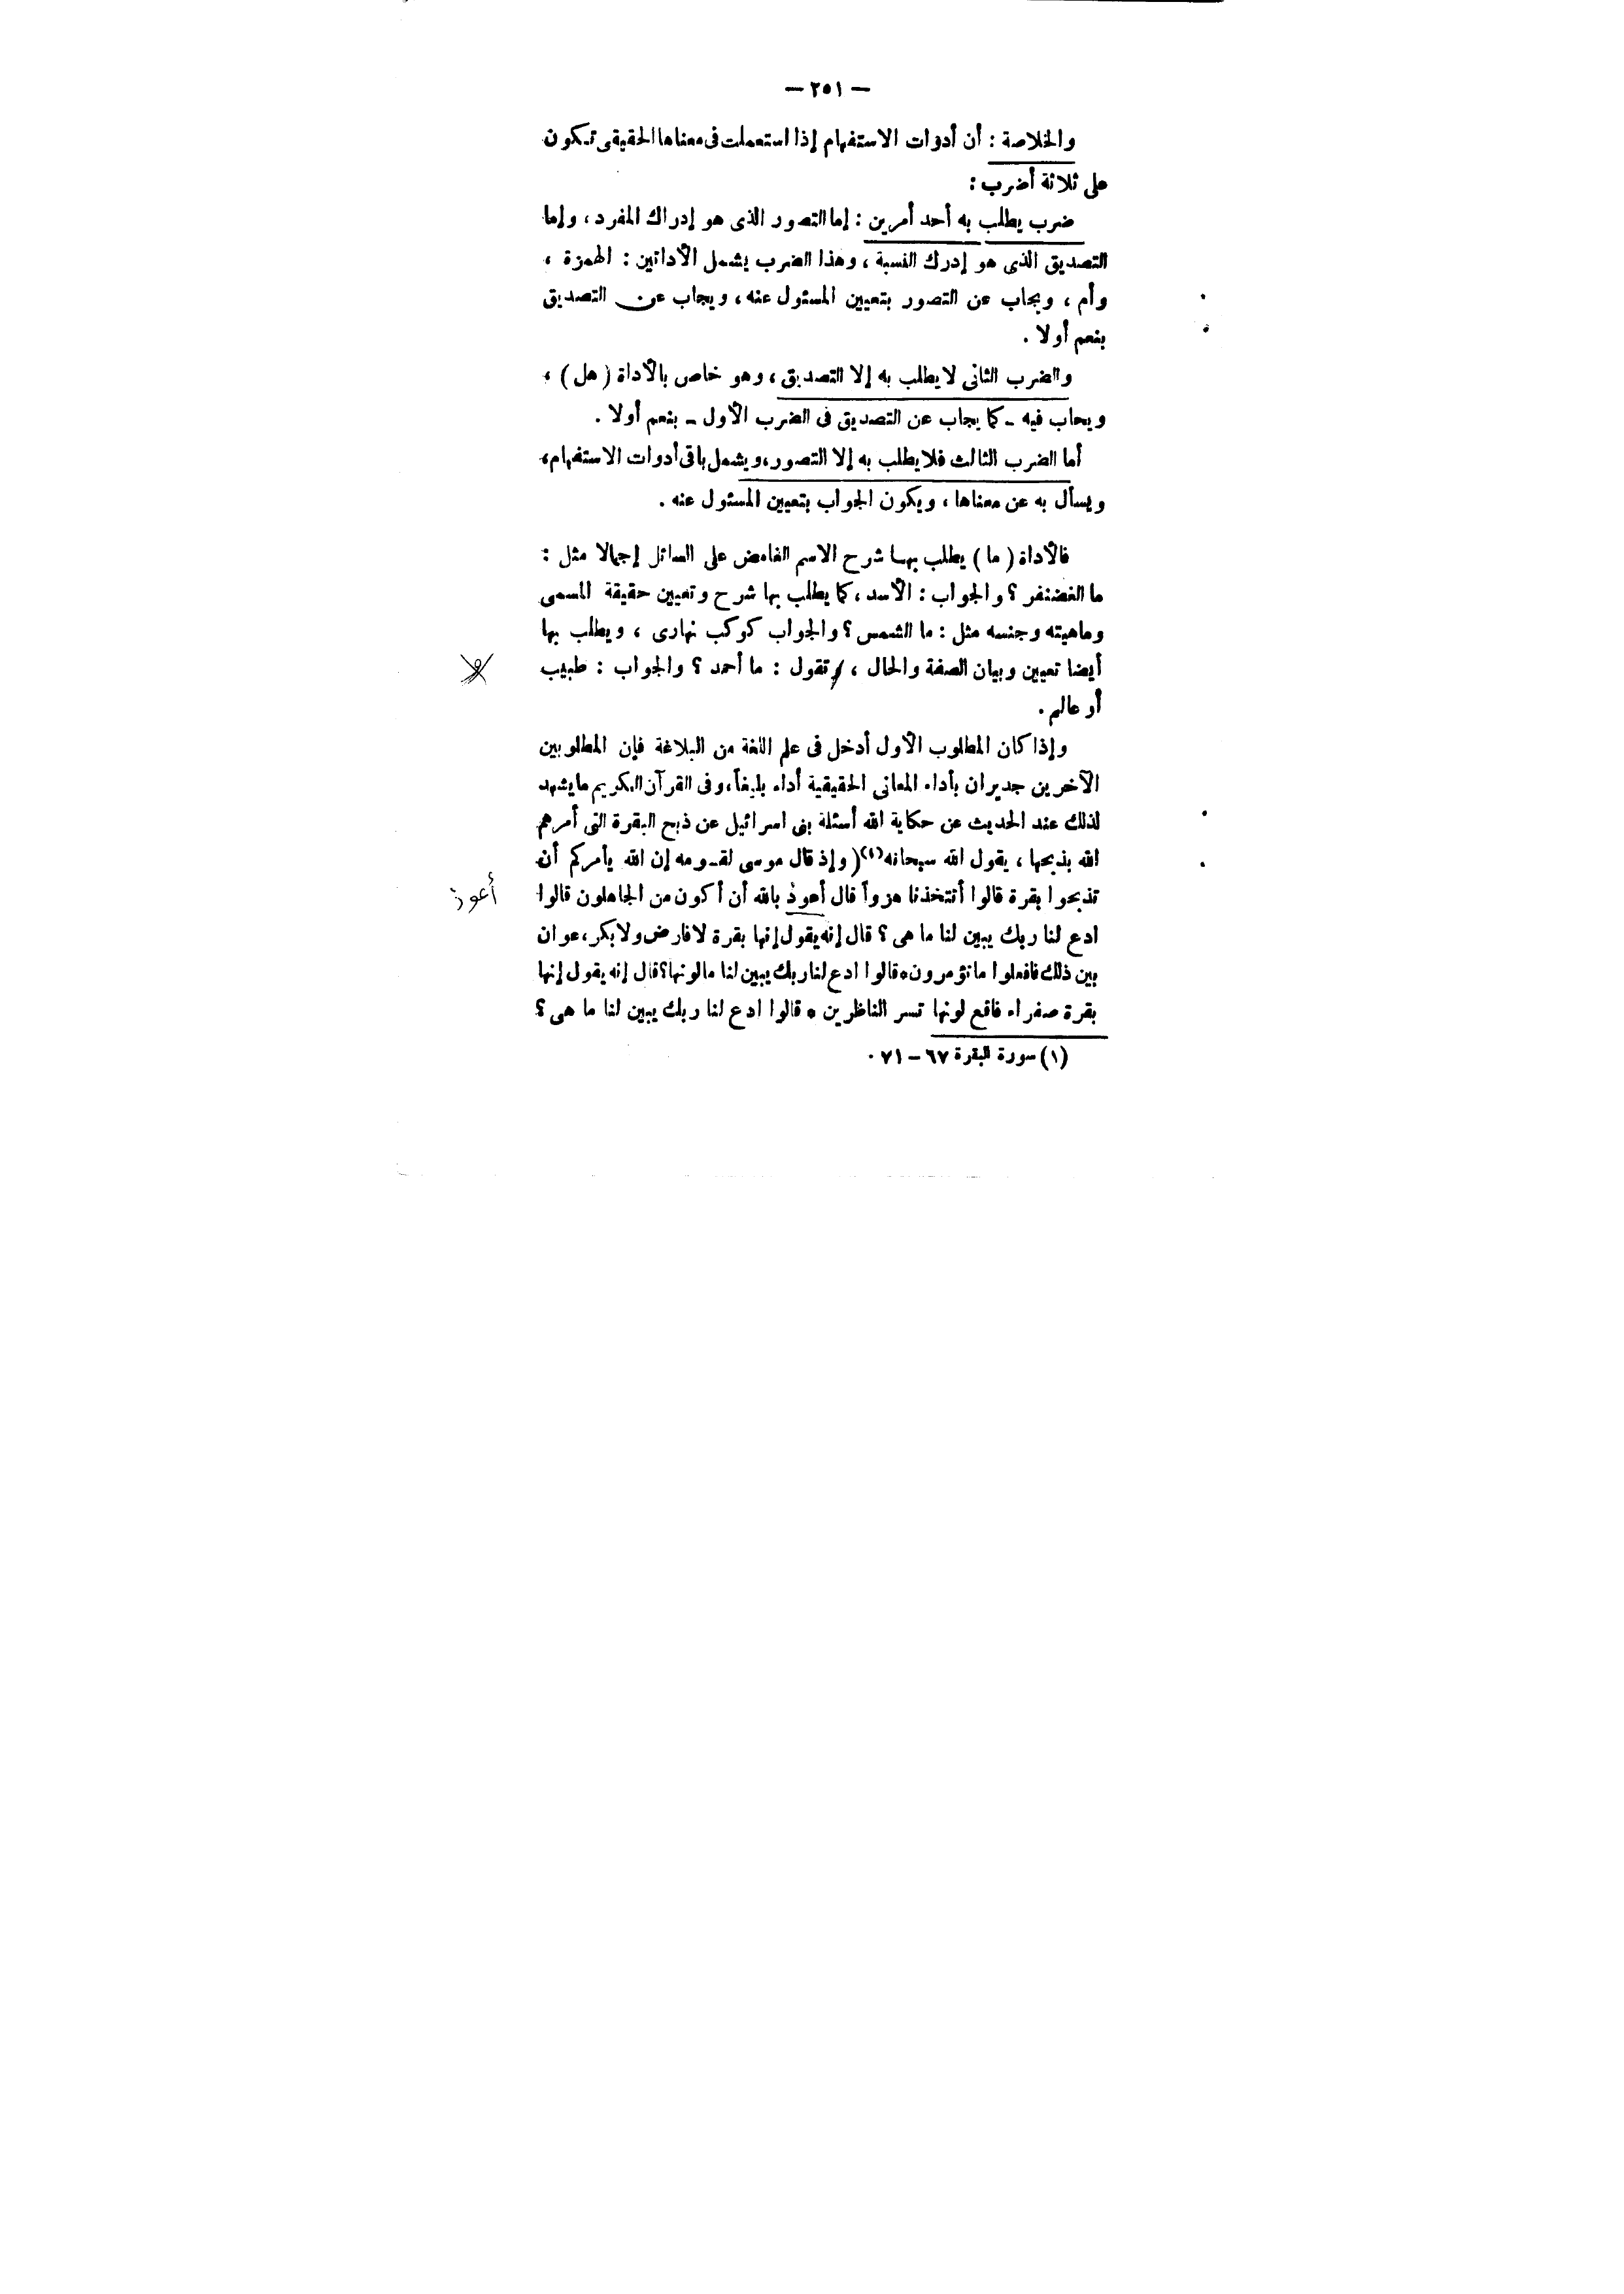 — ٢٥١ —
والخلاصة : أن أدوات الاستفهام إذا استعملت فى معناها الحقيقى تكون
على ثلاثة أضرب :
ضرب يطلب به أحد أمرين : إما التصور الذى هو إدراك المفرد ، وإما
التصديق الذى هو إدرك النسبة ، وهذا الضرب يشمل الأداتين : الهمزة ،
وأم ، ويجاب عن التصور بتعيين المسئول عنه ، ويجاب عن التصديق
بنعم أولا .
والضرب الثانى لا يطلب به إلا التصديق ، وهو خاص بالأداة ( هل ) ،
ويجاب فيه ـ كما يجاب عن التصديق فى الضرب الأول ـ بنعم أولا .
أما الضرب الثالث فلا يطلب به إلا التصور ، ويشمل باقى أدوات الاستفهام ،
ويسأل به عن معناها ، ويكون الجواب بتعيين المسئول عنه .
فالأداة ( ما ) يطلب بها شرح الاسم الغامض على السائل إجمالا مثل :
ما الغضنفر ؟ والجواب : الأسد ، كما يطلب بها شرح وتعيين حقيقة المسمى
وماهيته وجنسه مثل : ما الشمس ؟ والجواب كوكب نهارى ، ويطلب بها
أيضا تعيين وبيان الصفة والحال ، وتقول : ما أحمد ؟ والجواب : طبيب
أو عالم .
وإذا كان المطلوب الأول أدخل فى علم اللغة من البلاغة فإن المطلوبين
الآخرين جديران بأداء المعانى الحقيقية أداء بليغاً ، وفى القرآن الكريم ما يشهد
لذلك عند الحديث عن حكاية الله أسئلة بنى اسرائيل عن ذبح البقرة التى أمرهم
الله بذبحها ، يقول الله سبحانه (١) ( وإذ قال موسى لقومه إن الله يأمركم أن
تذبحوا بقرة قالوا أتتخذنا هزواً قال أعوذ بالله أن أكون من الجاهلون قالوا
أعوذ
ادع لنا ربك يبين لنا ما هى ؟ قال إنه يقول إنها بقرة لا فارض ولا بكر ، عوان
بين ذلك فافعلوا ما تؤمرون * قالوا ادع لنا ربك يبين لنا مالونها ؟ قال إنه يقول إنها
بقرة صفراء فاقع لونها تسر الناظرين * قالوا ادع لنا ربك يبين لنا ما هى ؟
(١) سورة البقرة ٦٧ – ٧١ .